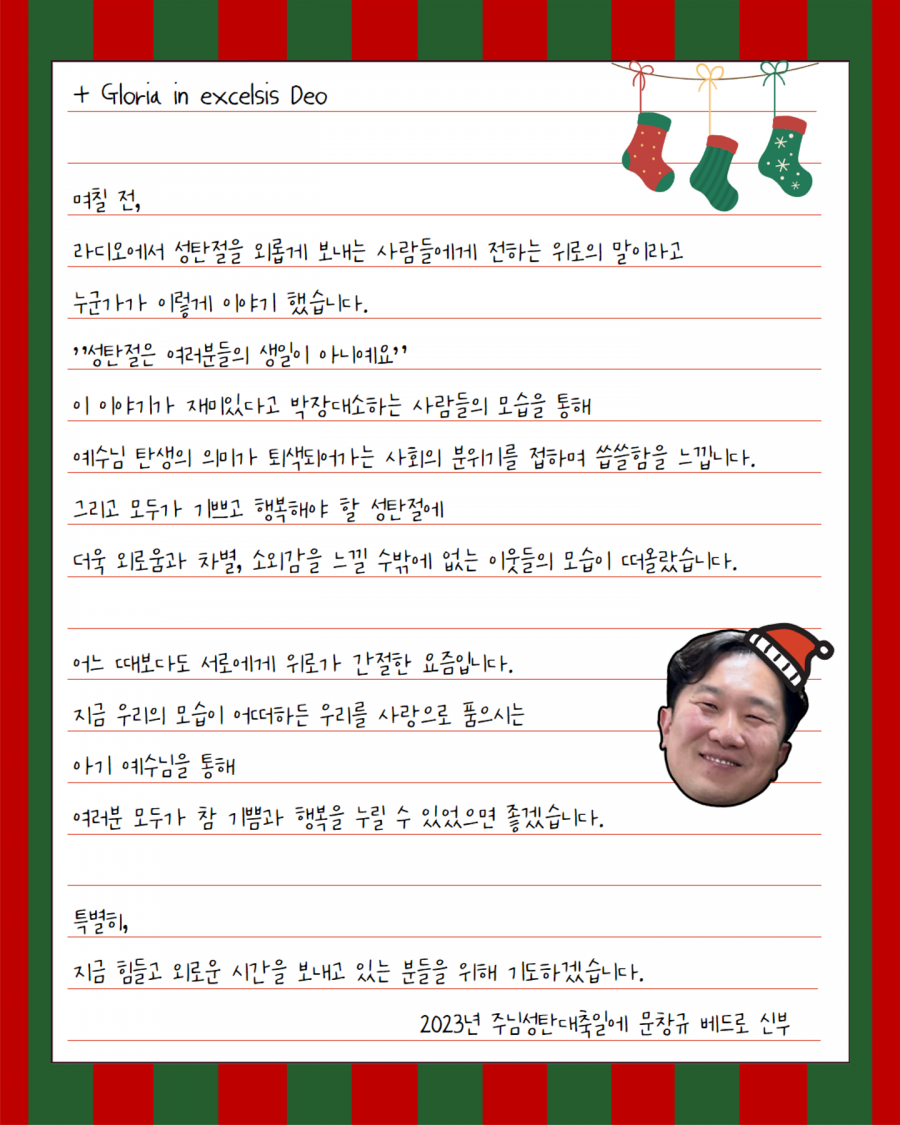 + Gloria in excelsis Deo
며칠 전,
라디오에서 성탄절을 외롭게 보내는 사람들에게 전하는 위로의 말이라고
누군가가 이렇게 이야기 했습니다.
’’성탄절은 여러분들의 생일이 아니예요’’
이 이야기가 재미있다고 박장대소하는 사람들의 모습을 통해
예수님 탄생의 의미가 퇴색되어가는 사회의 분위기를 접하며 씁쓸함을 느낍니다.
그리고 모두가 기쁘고 행복해야 할 성탄절에
더욱 외로움과 차별, 소외감을 느낄 수밖에 없는 이웃들의 모습이 떠올랐습니다.
어느 때보다도 서로에게 위로가 간절한 요즘입니다.
지금 우리의 모습이 어떠하든 우리를 사랑으로 품으시는
아기 예수님을 통해
여러분 모두가 참 기쁨과 행복을 누릴 수 있었으면 좋겠습니다.
특별히,
지금 힘들고 외로운 시간을 보내고 있는 분들을 위해 기도하겠습니다.
2023년 주님성탄대축일에 문창규 베드로 신부